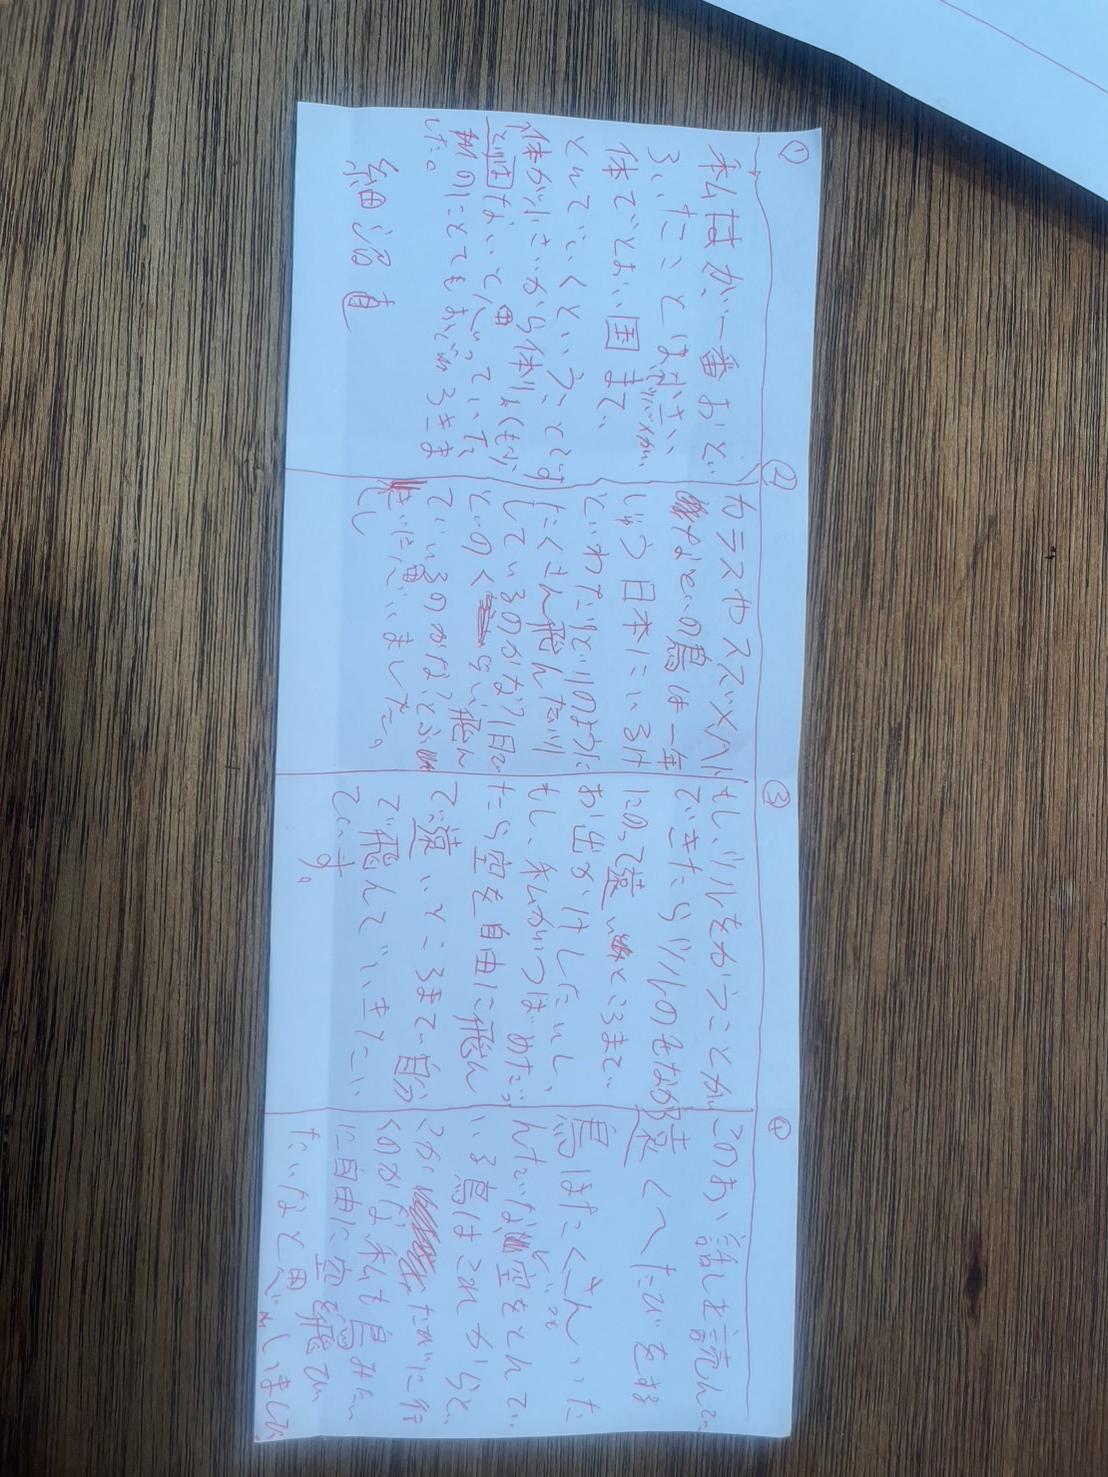 ①
私はが一番おど
ろいたことは小さい
体でとおい国まで、
とんでいくということです
体が小さいから体りょくも少
ないと思っていた
のにとてもおどろきま
した。
細沼直
②
カラスやスズメ
などの鳥は一年
じゅう日本にいるけ
どわたりどりのように
たくさん飛んだり
しているのかな?1日で
どのくらい飛ん
でいるのかな?とふ
しぎに思いました。
③
もし、ツルをかうことが
できたらツルのせなか
にのって遠いところまで
お出かけしたいし、
もし、私がいつばめだっ
たら空を自由に飛ん
で遠いところまで自分
で飛んでいきたい
です。
④
このお話しを読んで
遠くへたびをする
鳥はたくさんいた
んだなど空をとんで
いる鳥はこれからど
こかたびに行
くのかな私も鳥みたい
に自由に空を飛び
たいなと思いました